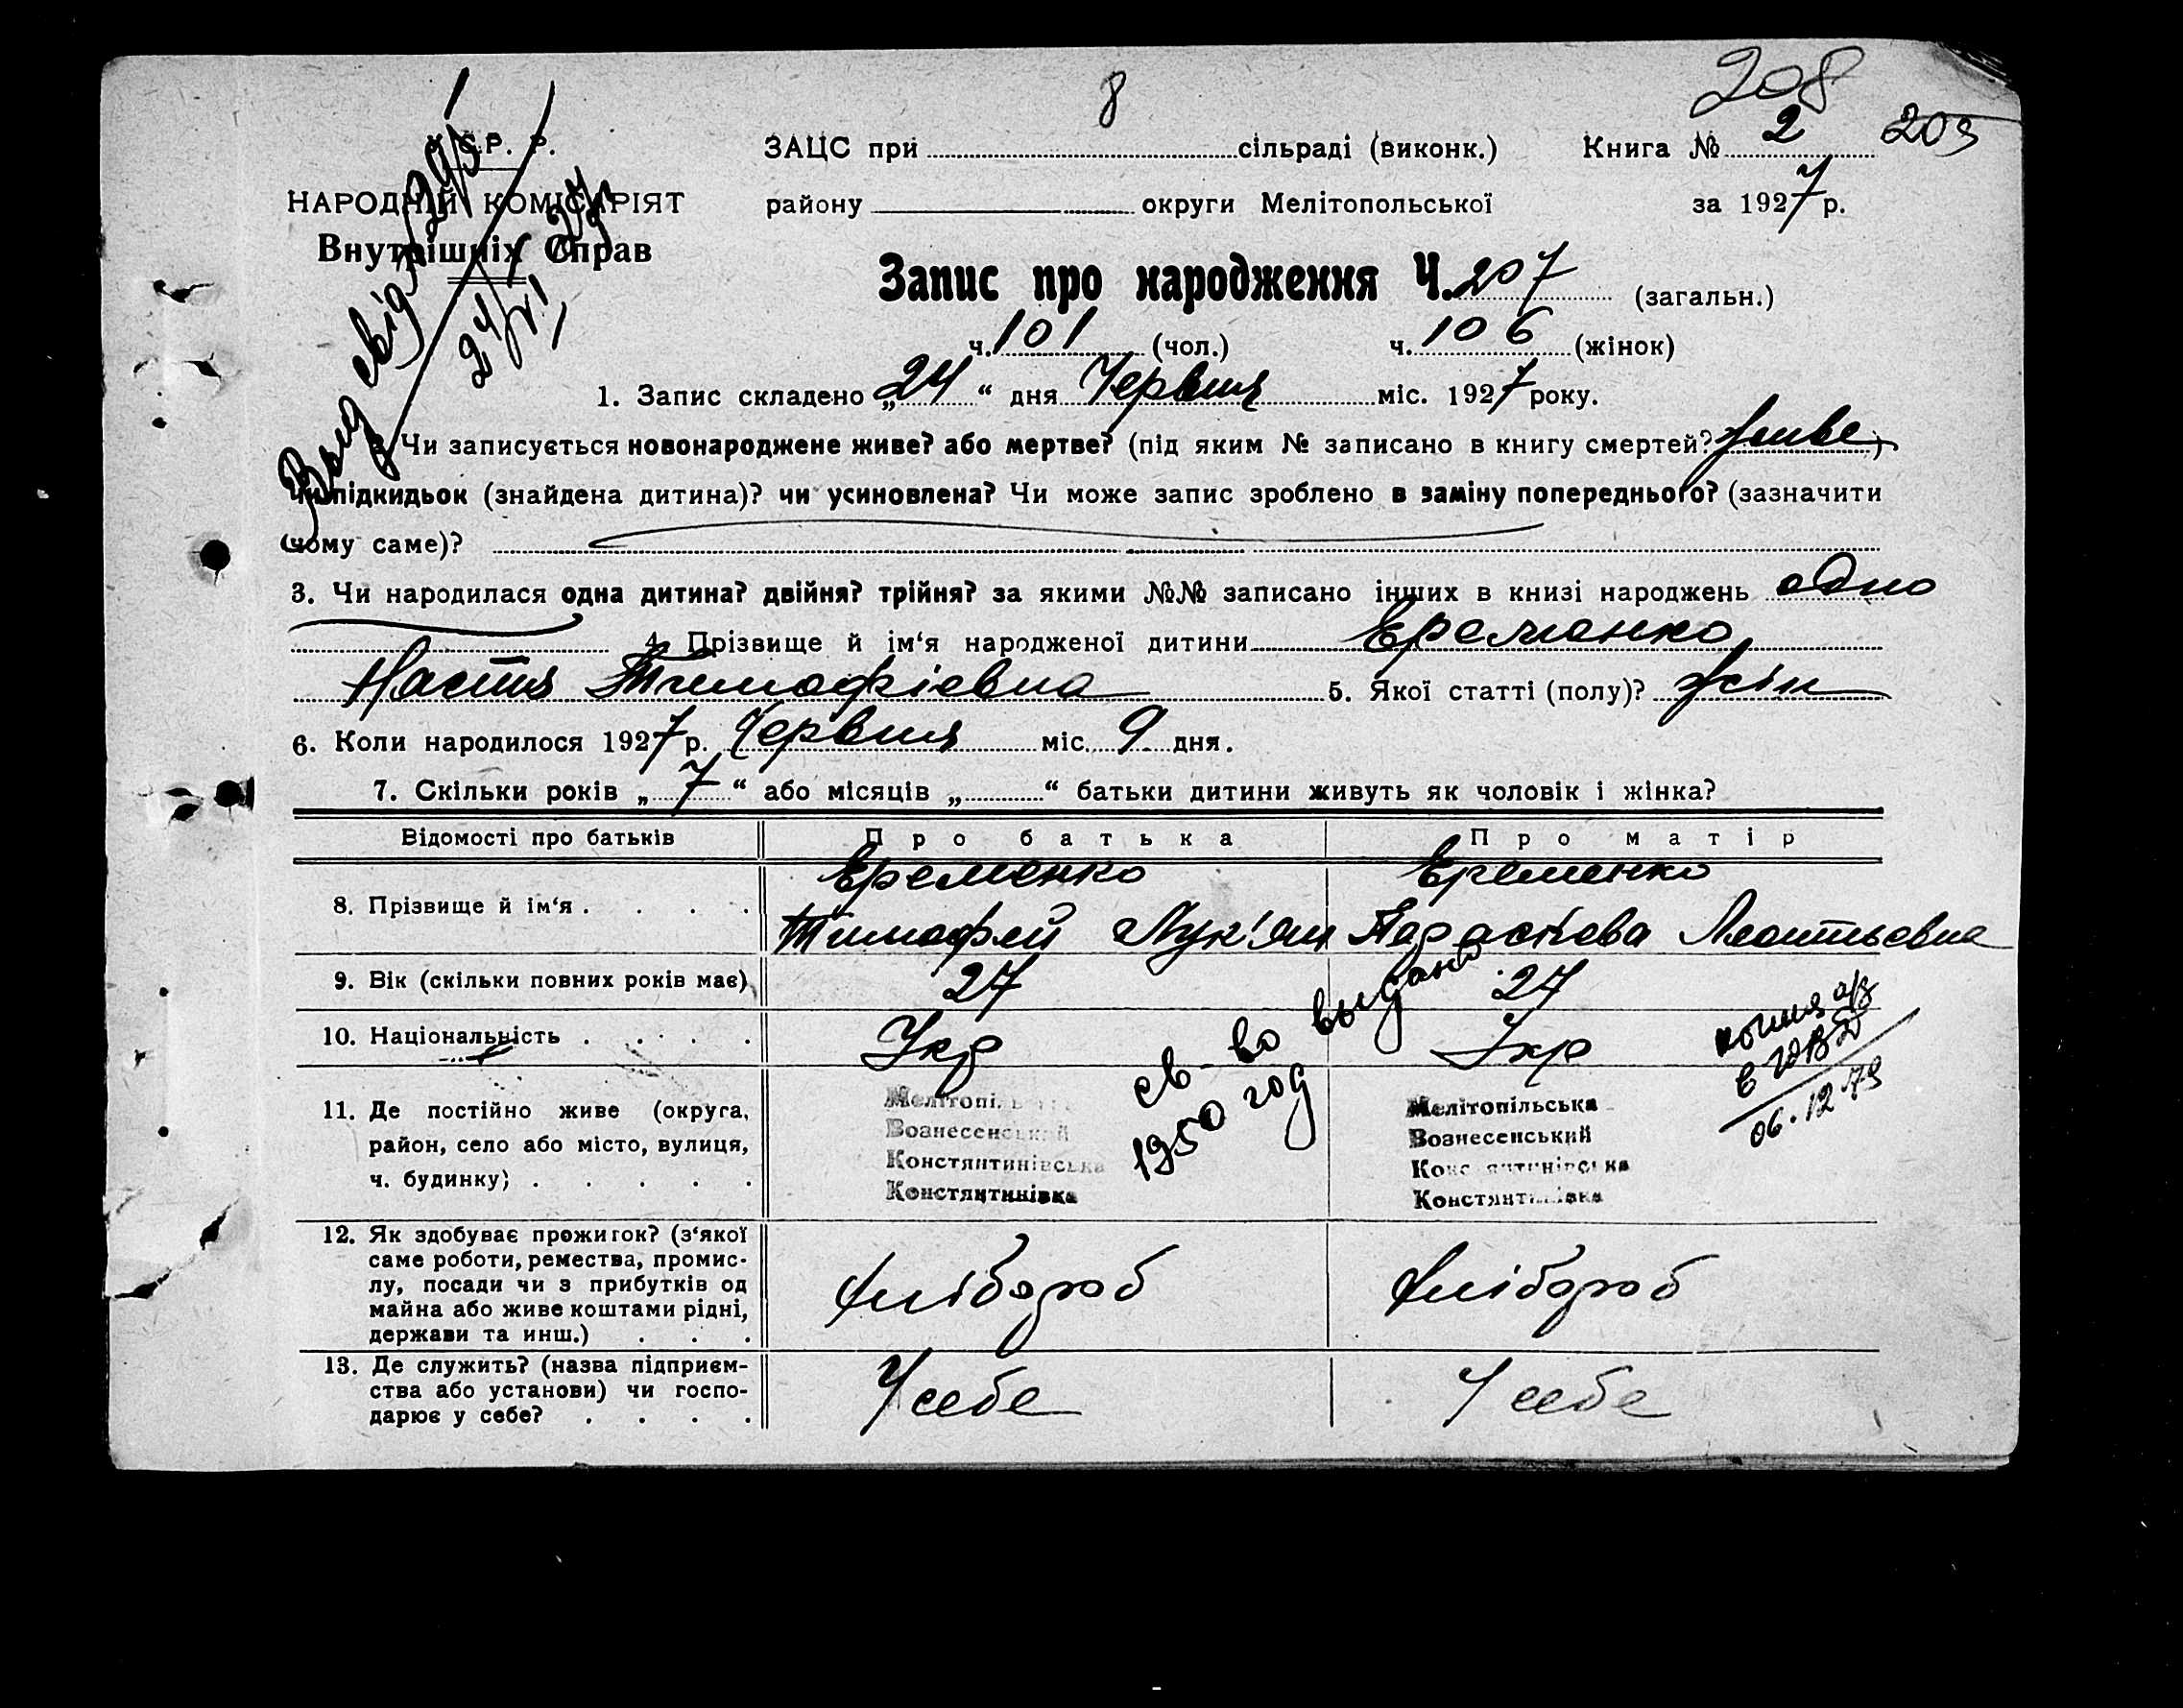 208
8
У.С.Р.Р. ЗАЦС при сільраді (виконк.) Книга № 2 209
НАРОДНІЙ КОМІСАРІЯТ району округи Мелітопольської за 1927 р.
Внутрішніх Справ
Запис про народження Ч. 207 (загальн.)
ч. 101 (чол.) ч. 106 (жінок)
Выд свід
24/VI 27
1. Запис складено „24“ дня Червня міс. 1927 року.
2. Чи записується новонароджене живе? або мертве? (під яким № записано в книгу смертей? живе)
чи підкидьок (знайдена дитина)? чи усиновлена? Чи може запис зроблено в заміну попереднього? (зазначити
чому саме)?
3. Чи народилася одна дитина? двійня? трійня? за якими №№ записано інших в книзі народжень одно
4. Прізвище й ім‘я народженої дитини Еременко
Настя Тимофіевна 5. Якої статті (полу)? жін
6. Коли народилося 1927 р. Червня міс. 9 дня.
7. Скільки років „7“ або місяців „ “ батьки дитини живуть як чоловік і жінка?
Відомості про батьків Про батька Про матір
8. Прізвище й ім‘я . . . . Еременко Еременко
Тимофей Лук'ян Параскева Леонтьевна
9. Вік (скільки повних років має) 27 27
10. Національність . . . . Укр Укр
св-во выдано
1950 год
копия а/з
в ЮВД
06.12.79
11. Де постійно живе (округа, Мелітопільська Мелітопільська
район, село або місто, вулиця, Вознесенський Вознесенський
ч. будинку) . . . . . Константинівська Константинівська
Константинівка Константинівка
12. Як здобуває прожиток? (з‘якої
саме роботи, ремества, промис-
лу, посади чи з прибутків од хлібороб хлібороб
майна або живе коштами рідні,
держави та инш.) . . .
13. Де служить? (назва підприєм-
ства або установи) чи госпо- У себе У себе
дарює у себе? . . . .